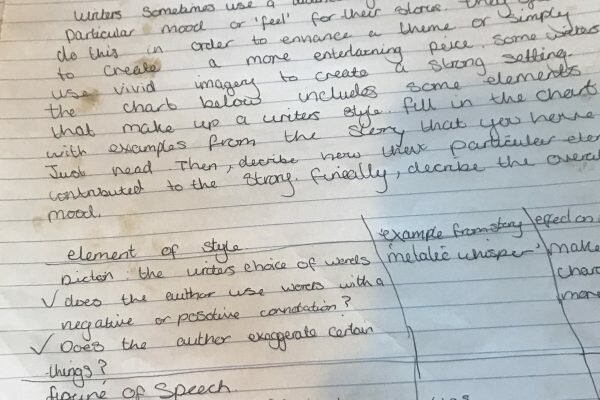 writers sometimes use a
particular mood or 'feel' for their stories. they
do this in order to enhance a theme or simply
to create a more entertaining peice. some writers
use vivid imagery to create a strong setting.
the chart below includes some elements
that make up a writers style. fill in the chart
with examples from the story that you have
Just read. Then, decribe how these particuler
contributed to the strong. fineally, decribe the
mood.
element of style example from story effect on
Dicton: the writers choice of words 'metalic whisper' make
✓ does the author use words with a
negative or posotive connotation? more
✓ Does the author exaggerate certain
things?
figure of Speech